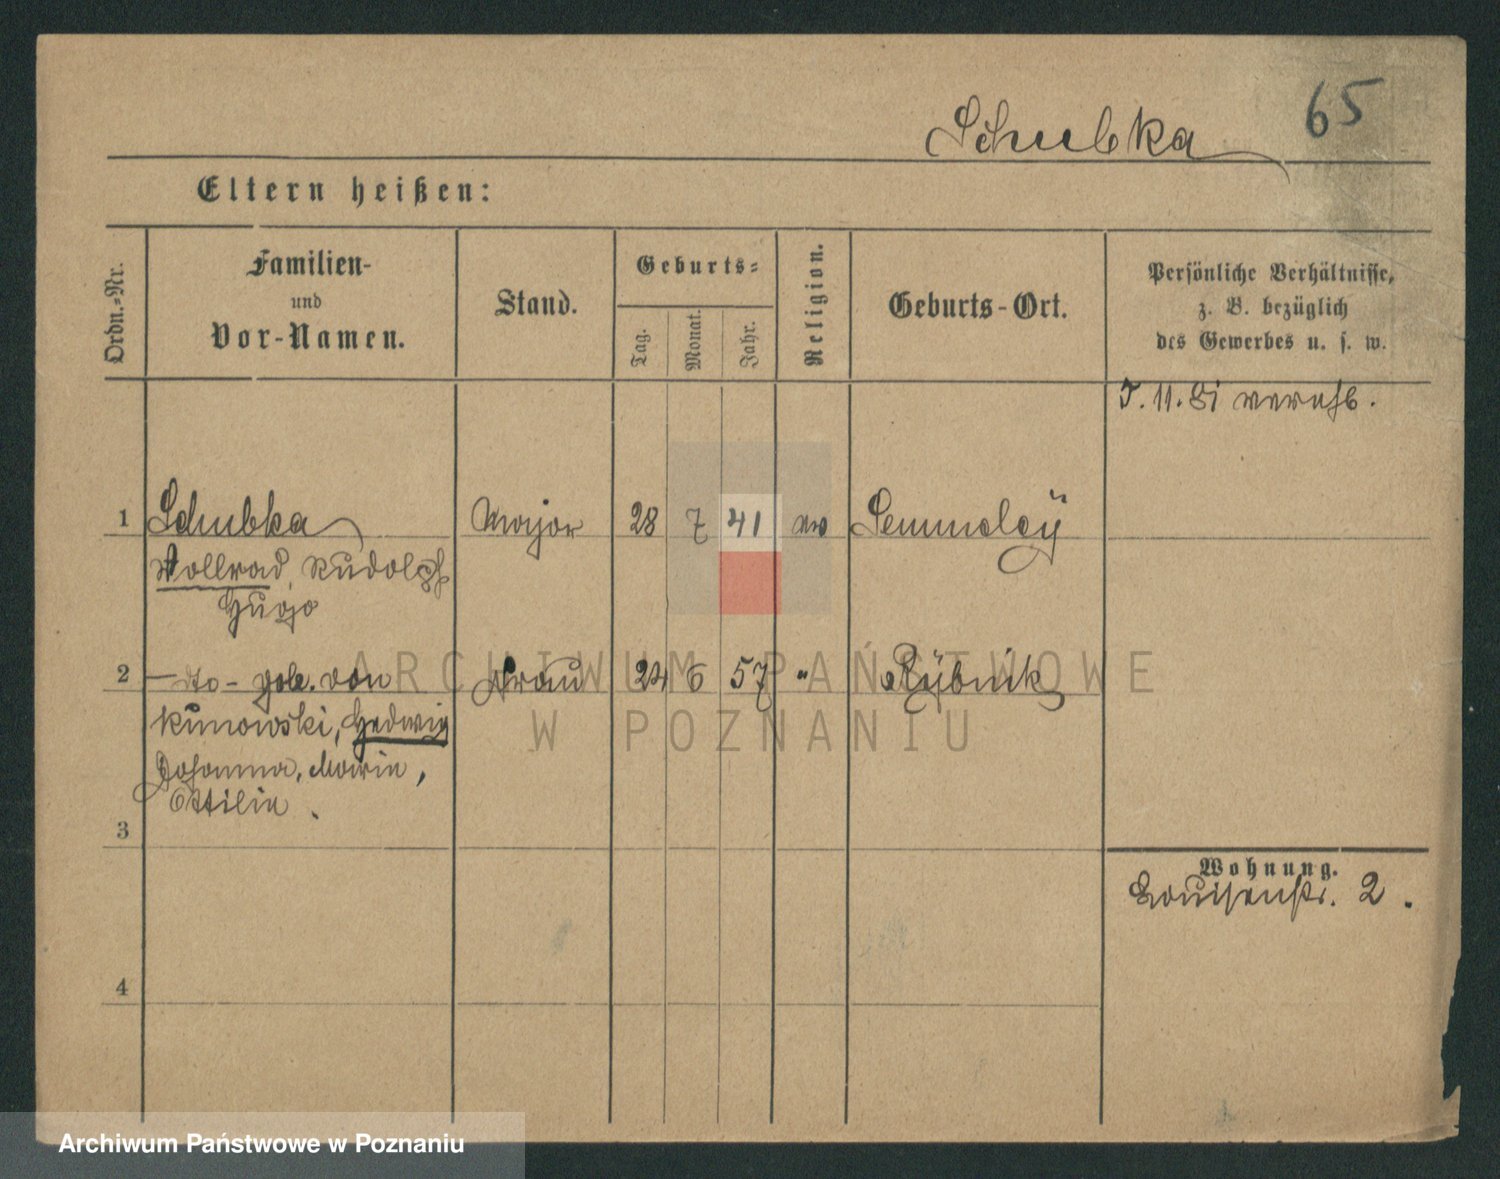 65
Schubka
Eltern heißen:
Ordn.-Nr.
Familien-
und
Vor-Namen.
Stand.
Geburts-
Tag.
Monat.
Jahr.
Religion.
Geburts-Ort.
Persönliche Verhältnisse,
z. B. bezüglich
des Gewerbes u. s. w.
1 Schubka Major 28 7 41 ev
Vollrad, Rudolph
Hugo
2 — do - geb. von Frau 24 6 57 " Rybnik
Kunowski, Hedwig
Johanna, Marie,
Ottilie.
3
4
Wohnung.
Louisenstr. 2.
ARCHIWUM PAŃSTWOWE
W POZNANIU
Archiwum Państwowe w Poznaniu